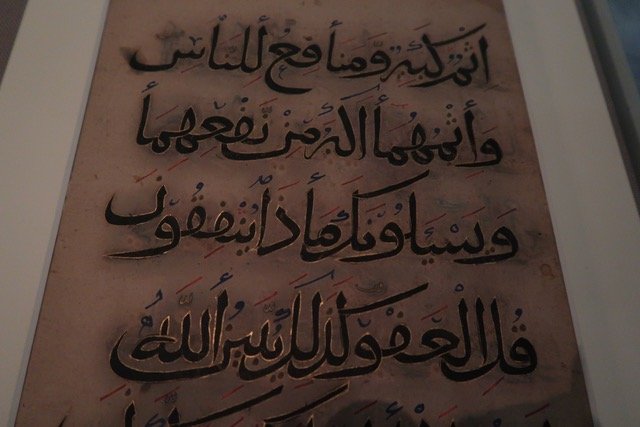 اثم كبير ومنافع للناس
وأثمهما أكبر من نفعهما
ويسئلونك ماذا ينفقون
قل العفو كذلك يبين الله